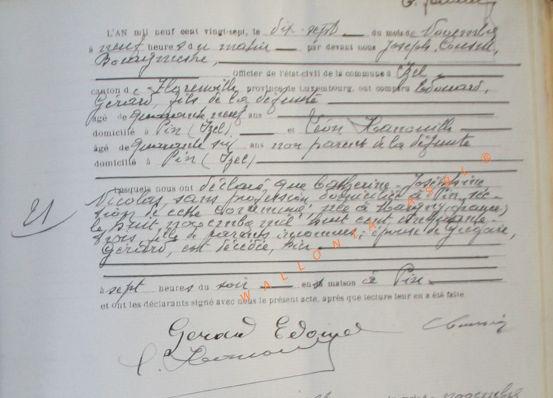 L'AN mil neuf cent vingt-sept, le dix-sept du mois de Novembre
à neuf heures du matin par devant nous Joseph
Bourgmestre,
Officier de l'état-civil de la commune d'Izel
canton de Florenville, province de Luxembourg, ont comparu Edouard,
Gérard, fils de la défunte
âgé de quarante neuf ans
domicilié à Pin (Izel) et Léon
âgé de quarante six ans non parent de la défunte
domicilié à Pin (Izel)
Lesquels nous ont déclaré, que Catherine Joséphine
21
Nicolas, sans profession domiciliée à Pin, sec-
tion de cette commune, née à
le huit novembre mil huit cent cinquante
trois, fille de parents inconnus, épouse de Grégoire,
Gérard, est décédée, hier
à sept heures du soir en sa maison à Pin
et ont les déclarants signé avec nous le présent acte, après que lecture leur en a été faite.
Gerard Edouard
WALLONIA ASBL ©
novembre